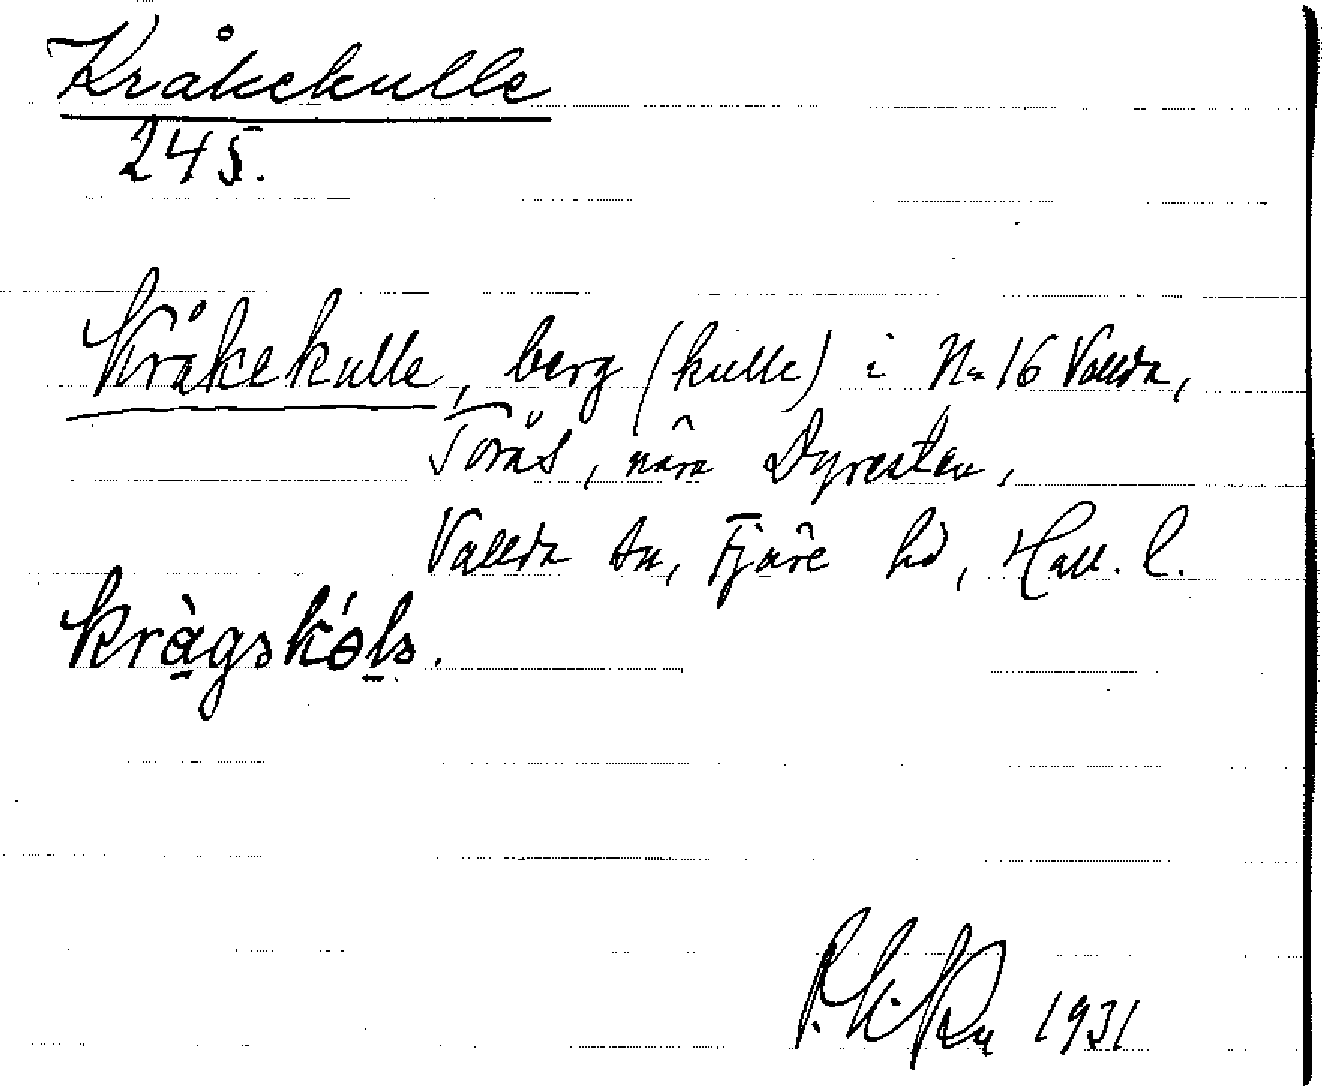 Kråkekulle
245.
Kråkekulle, berg (kulle) i No 16 Vallda,
Torås, nära Dyresten,
Vallda sn, Fjäre hd, Hall. l.
1931